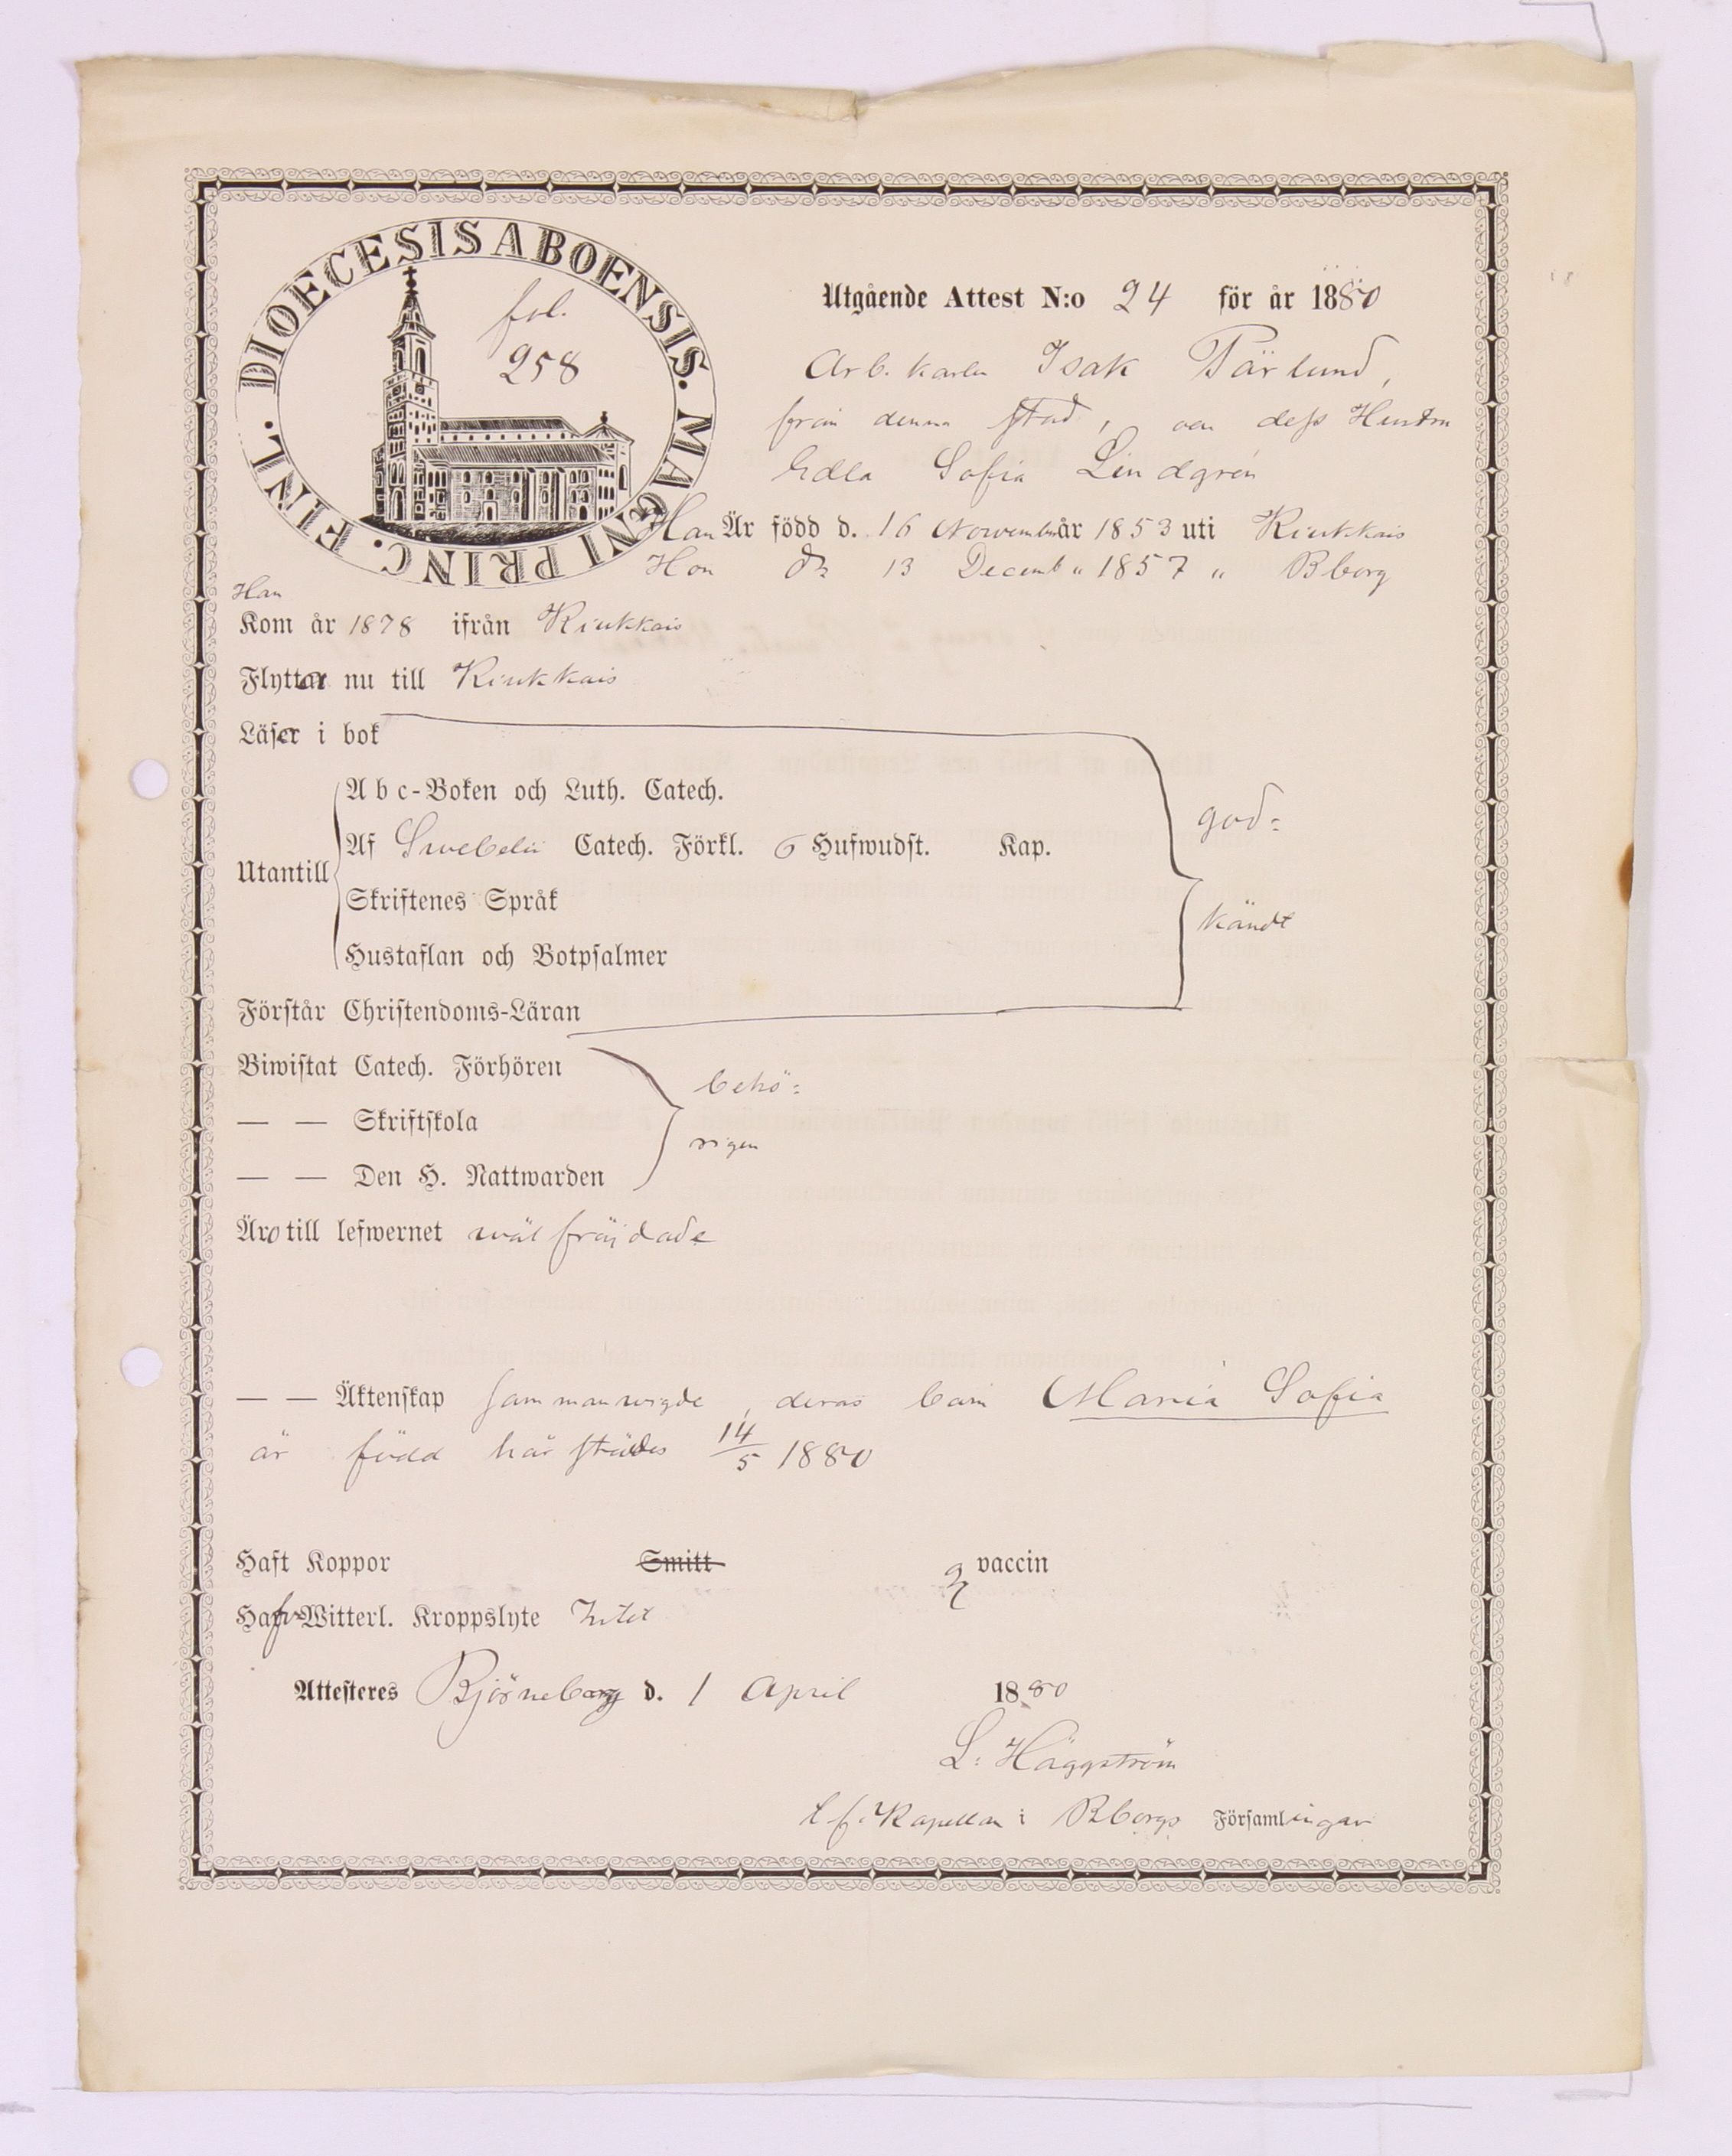 DIOECESIS ABOENSIS. MAGNI PRINC. FINL.
fol.
258
Utgående Attest N:o 24 för år 1880
Arb. karlen Isak Färlund,
från denna stad, och dess Hustru
Edla Sofia Lindgrén
Han Är född d. 16 November år 1853 uti Kiukkais
Hon do 13 Decemb " 1857 " Bborg
Han
Kom år 1878 ifrån Kiukkais
Flytta nu till Kiukkais
Läser i bok
Abc-Boken och Luth. Catech.
god=
Af Swebelii Catech. Förkl. 6 Hufwudst. Kap.
Utantill
Skriftenes Språk
kändt
Hustaflan och Botpsalmer
Förstår Christendoms-Läran
Biwistat Catech. Förhören
behö=
— — Skriftskola
rigen
— — Den H. Nattwarden
Äro till lefwernet wälfräjdade
— — Äktenskap sammanwigde, deras barn Maria Sofia
är född härstädes 14/5 1880
Haft Koppor Smitt vaccin
Hafva Witterl. Kroppslyte Intet
Attesteres Björneborg d. 1 April 1880
L. Häggström
t. f. Kapellan i Bborgs Församlingar